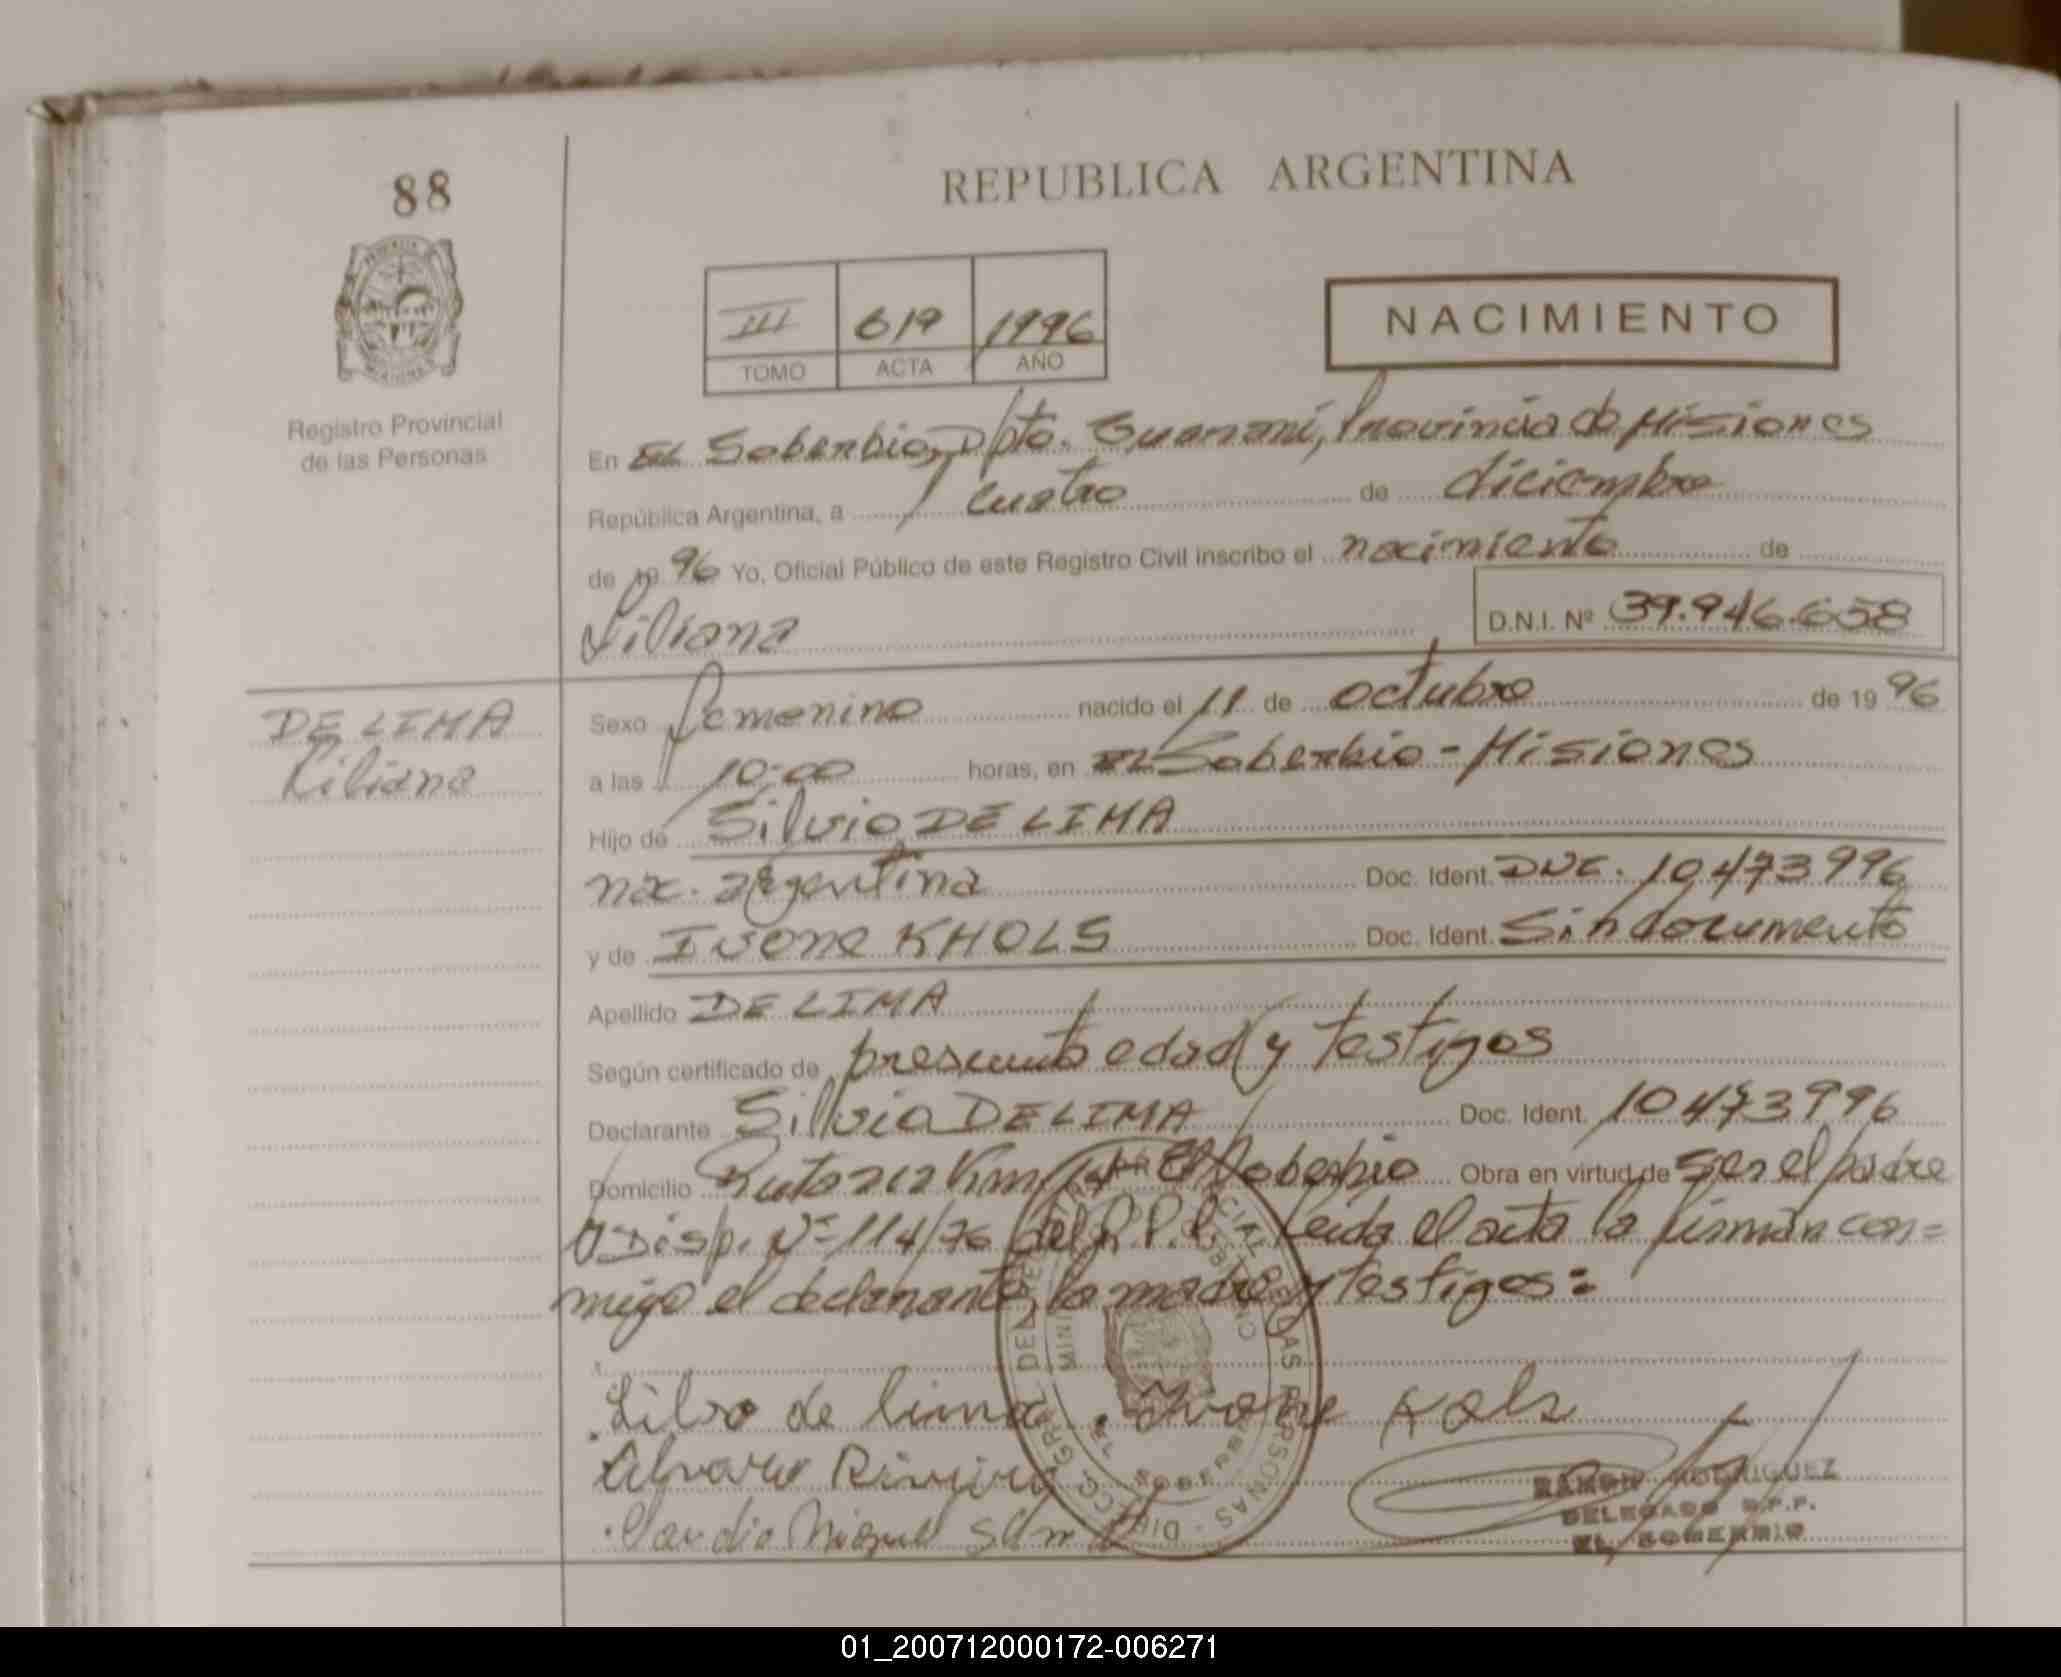 88
REPUBLICA ARGENTINA
III 619 1996
TOMO ACTA AÑO
NACIMIENTO
Registro Provincial
de las Personas
En EL Soberbio, Dpto. Guaraní, Provincia de Misiones
República Argentina, a cuatro de diciembre
de 1996 Yo, Oficial Público de este Registro Civil inscribo el nacimiento de
Liliana
D.N.I. Nº 39.946.658
DE LIMA
Liliana
Sexo femenino nacido el 11 de octubre de 1996
a las 10:00 horas, en EL Soberbio - Misiones
Hijo de Silvio DE LIMA
nac. argentina Doc. Ident. DNI. 10473996
y de Ivone KHOLS Doc. Ident. Sin documento
Apellido DE LIMA
Según certificado de presunta edad y testigos
Declarante Silvio DE LIMA Doc. Ident. 10473996
Domicilio Ruta 212 Km El Soberbio Obra en virtud de ser el padre
Disp. Nº 114/76 del R.P.P. - Leida el acta la firman con=
migo el declarante, la madre y testigos:
Silvo de lima. Ivone Kols
Alvaro
Claudio Miguel
RAMON RODRIGUEZ
DELEGADO R.P.P.
EL SOBERBIO
01_200712000172-006271